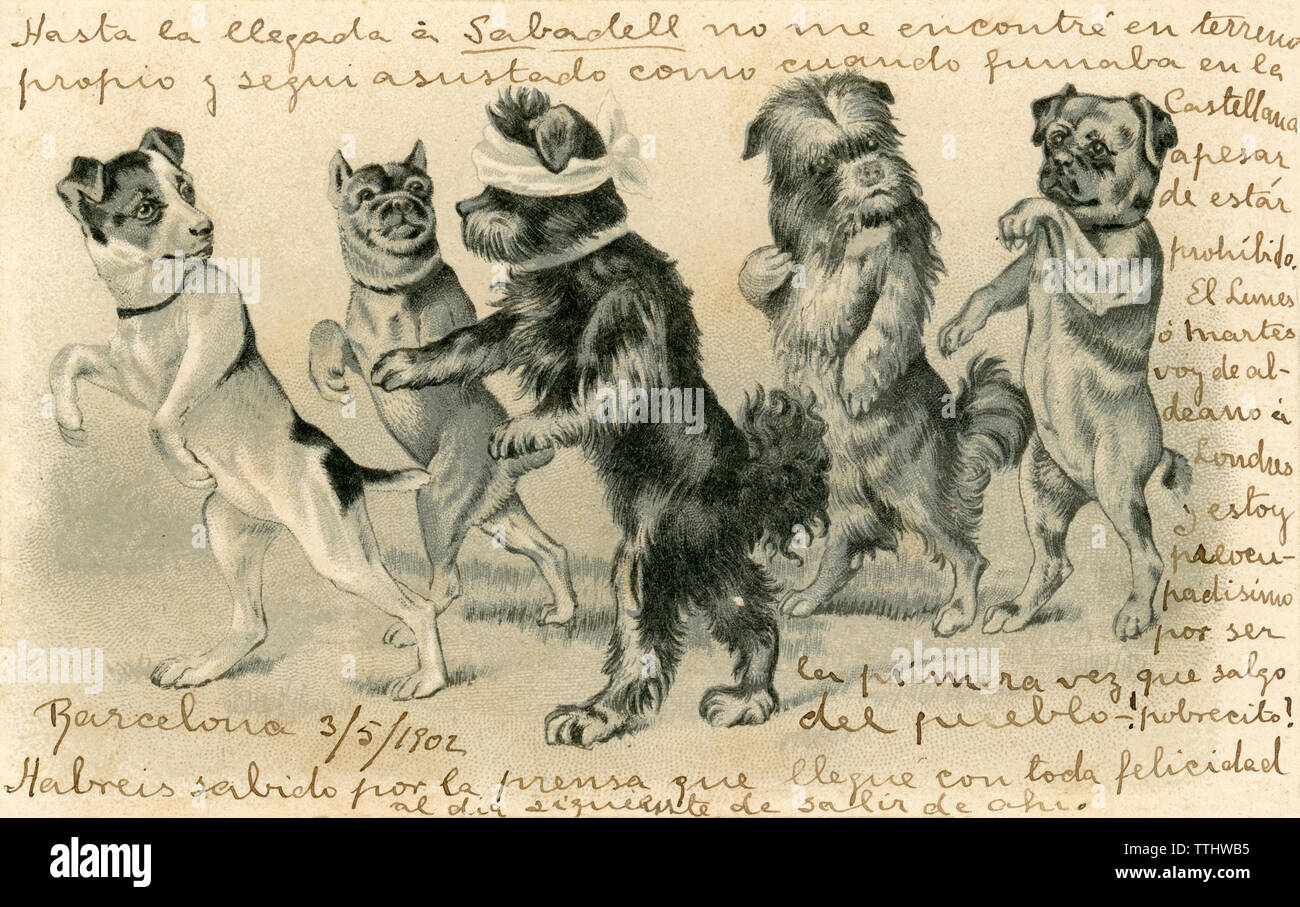 Hasta la llegada á Sabadell no me encontré en terreno
propio y segui asustado como cuando fumaba en la
Castellana
apesar
de estár
prohíbido.
El Lunes
ó Martes
voy de al-
deano á
Londres
y estoy
preocu-
padisimo
por ser
la primera vez que salgo
del pueblo-¡pobrecito!
Barcelona 3/5/1902
Habreis sabido por la prensa que llegué con toda felicidad
al dia siguiente de salir de ahi.
a
alamy
alamy
a
a
a
a
alamy stock photo
TTHWB5
www.alamy.com